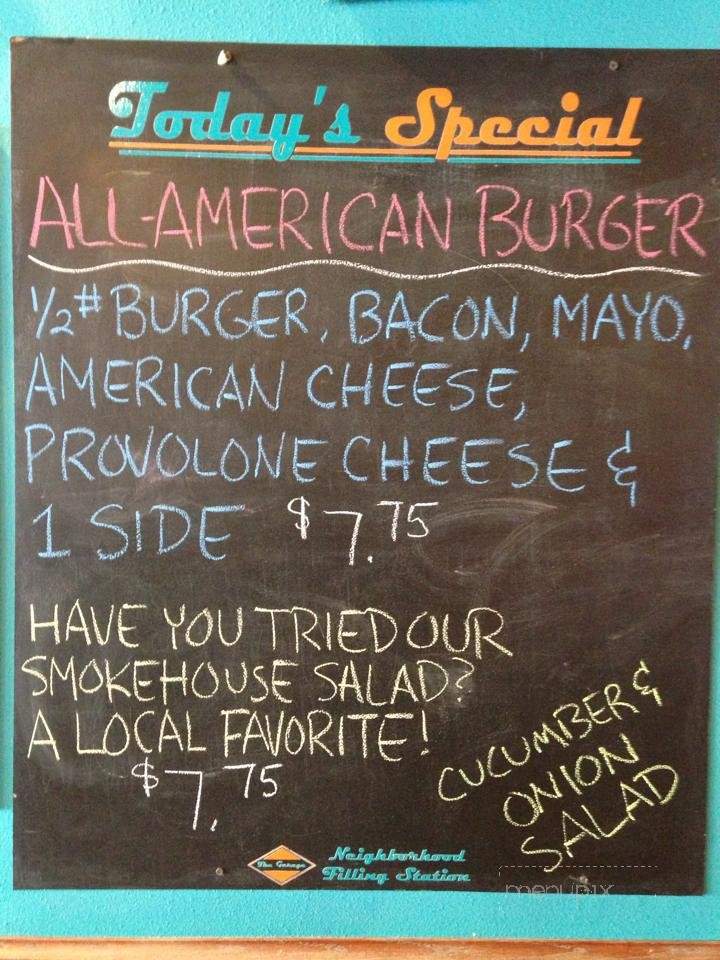 Today's Special
ALL-AMERICAN BURGER
1/2# BURGER, BACON, MAYO,
AMERICAN CHEESE,
PROVOLONE CHEESE &
1 SIDE $7.75
HAVE YOU TRIED OUR
SMOKEHOUSE SALAD?
A LOCAL FAVORITE!
$7.75
CUCUMBER &
ONION
SALAD
The Garage
Neighborhood
Filling Station
menupix